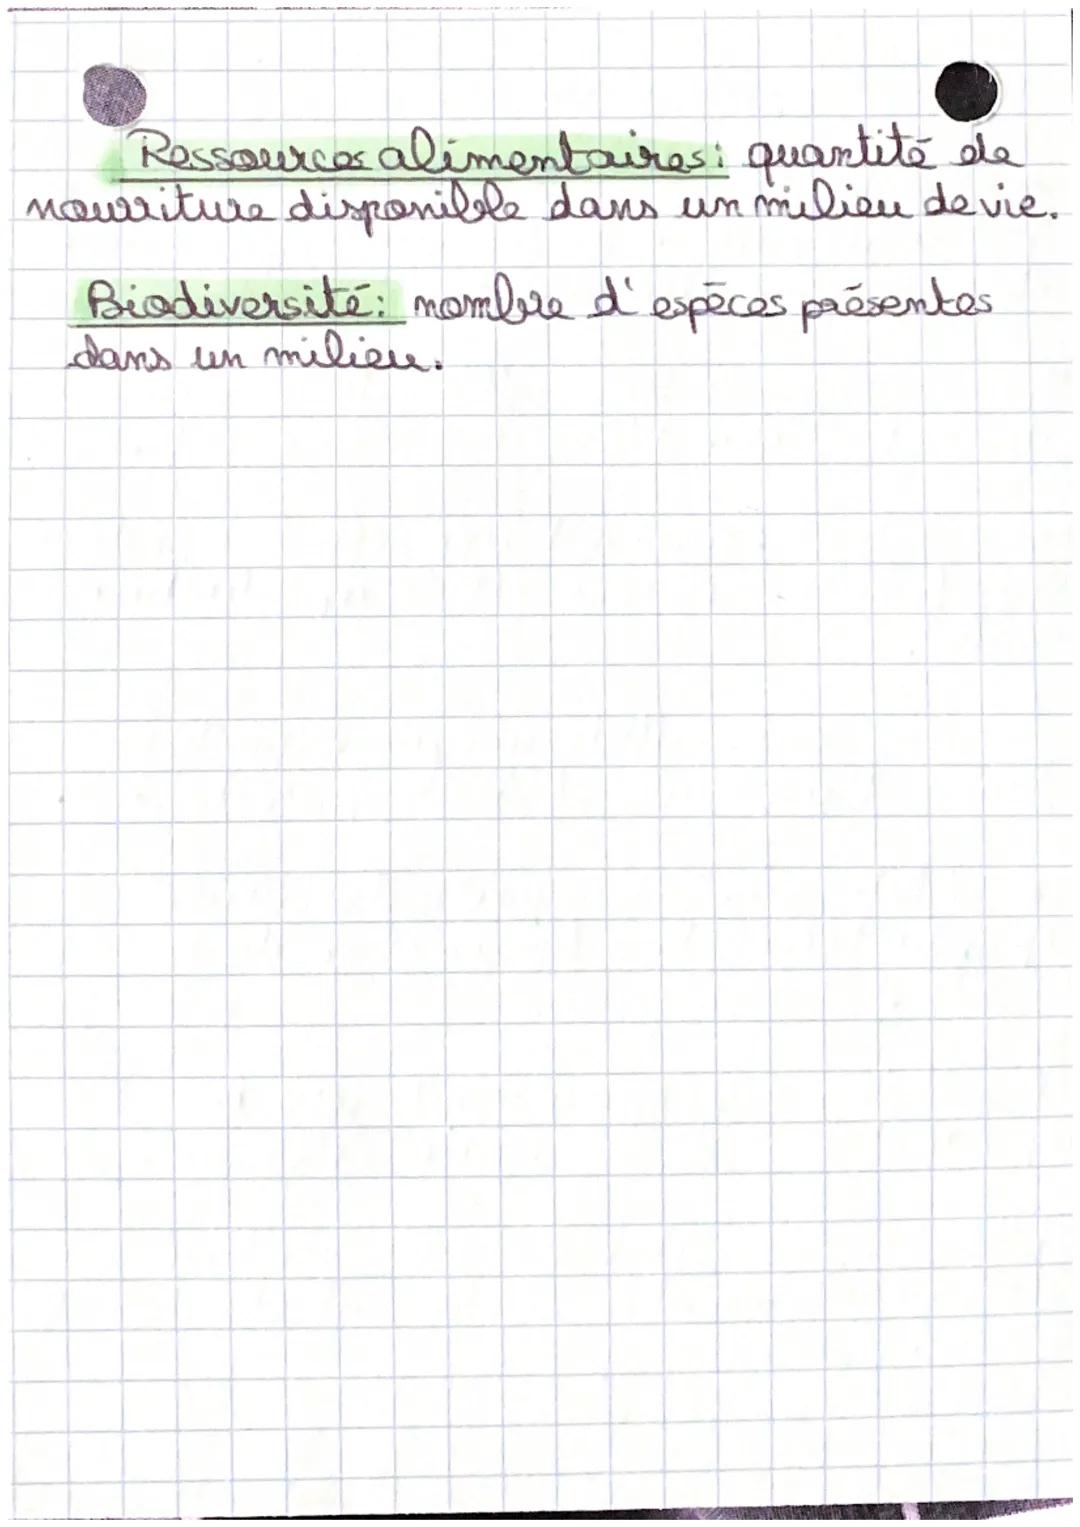 Ressources alimentaires : quantité de
nourriture disponible dans un milieu de vie.
Biodiversité : nombre d'espèces présentes
dans un milieu.